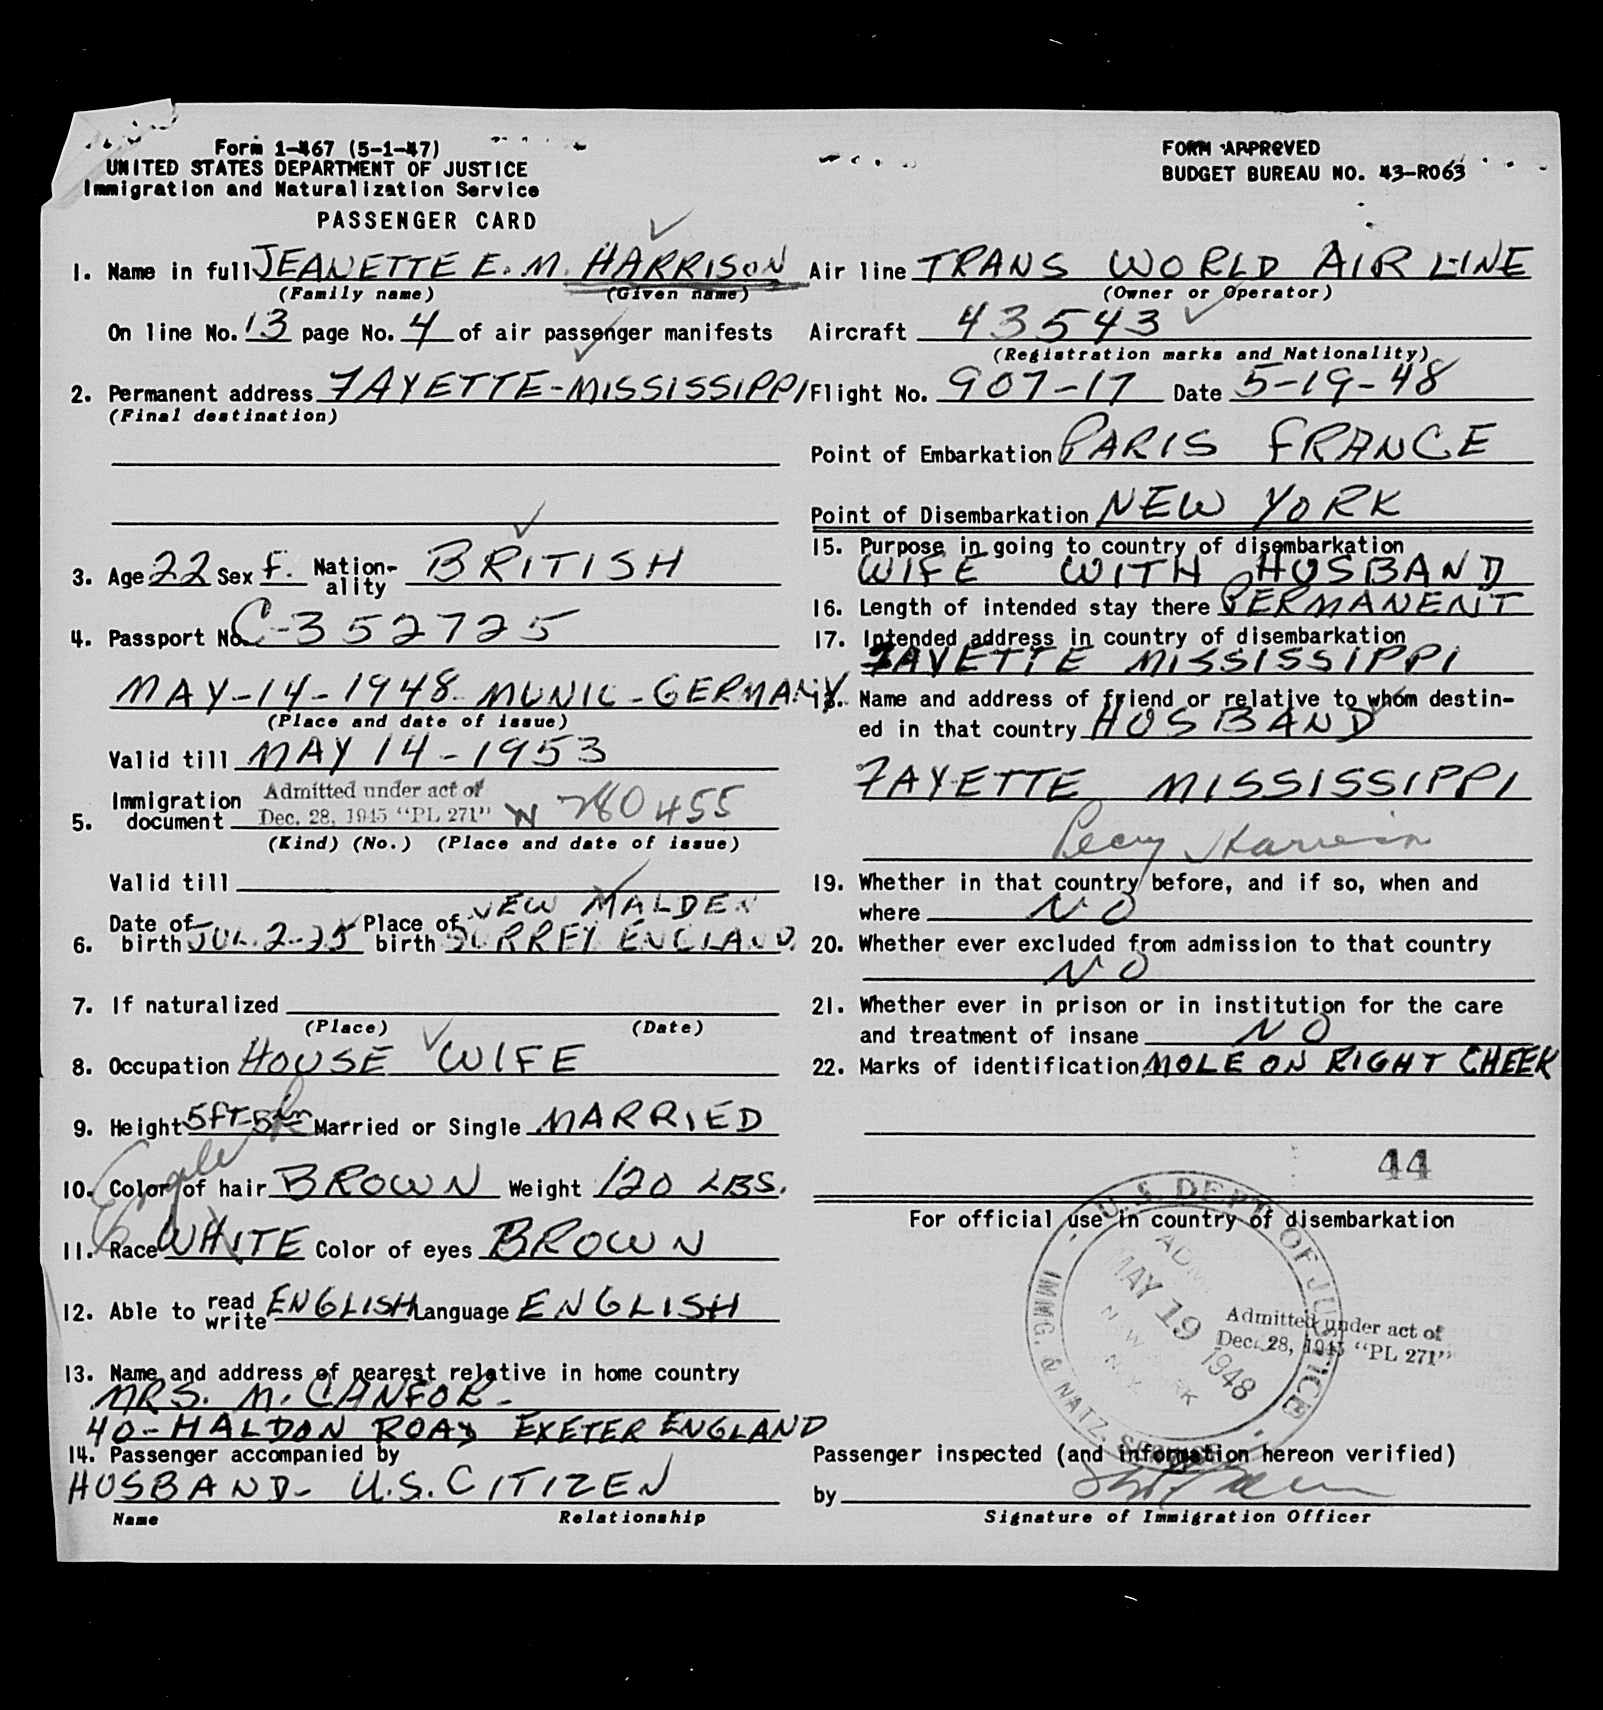 Form I-467 (5-1-47)
UNITED STATES DEPARTMENT OF JUSTICE
Immigration and Naturalization Service
PASSENGER CARD
FORM APPROVED
BUDGET BUREAU NO. 43-RO63
1. Name in full JEANETTE E. M. HARRISON
(Family name) (Given name)
On line No. 13 page No. 4 of air passenger manifests
2. Permanent address FAYETTE-MISSISSIPPI
(Final destination)
3. Age 22 Sex F. Nation-ality BRITISH
4. Passport No. C-352725
MAY-14-1948-MUNIC-GERMANY
(Place and date of issue)
Valid till MAY 14-1953
Admitted under act of
5. Immigration document Dec. 28, 1945 "PL 271" N 780455
(Kind) (No.) (Place and date of issue)
Valid till
NEW MALDEN
6. Date of birth JUL. 2-25 Place of birth SURREY ENGLAND
7. If naturalized
(Place) (Date)
8. Occupation HOUSE WIFE
9. Height 5FT-5in Married or Single MARRIED
10. Color of hair BROWN Weight 120 LBS.
11. Race WHITE Color of eyes BROWN
12. Able to read write ENGLISH Language ENGLISH
13. Name and address of nearest relative in home country
MRS. M. CANFOR-
40-HALDON ROAD EXETER ENGLAND
14. Passenger accompanied by
HUSBAND- U.S. CITIZEN
Name Relationship
Air line TRANS WORLD AIR LINE
(Owner or Operator)
Aircraft 43543
(Registration marks and Nationality)
Flight No. 907-17 Date 5-19-48
Point of Embarkation PARIS FRANCE
Point of Disembarkation NEW YORK
15. Purpose in going to country of disembarkation
WIFE WITH HUSBAND
16. Length of intended stay there PERMANENT
17. Intended address in country of disembarkation
FAYETTE MISSISSIPPI
18. Name and address of friend or relative to whom destin-
ed in that country HUSBAND
FAYETTE MISSISSIPPI
Percy Harrison
19. Whether in that country before, and if so, when and
where NO
20. Whether ever excluded from admission to that country
NO
21. Whether ever in prison or in institution for the care
and treatment of insane NO
22. Marks of identification MOLE ON RIGHT CHEEK
44
For official use in country of disembarkation
U.S. DEPT. OF JUSTICE
IMMG. & NATZ. SERVICE
MAY 19 1948
NEW YORK
N.Y.
Admitted under act of
Dec. 28, 1945 "PL 271"
Passenger inspected (and information hereon verified)
by
Signature of Immigration Officer